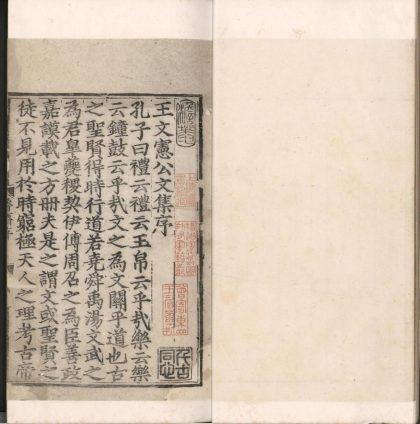 王文憲公文集序
孔子曰禮云禮云玉帛云乎㦲樂云樂
云鐘鼓云乎㦲文之為文關乎道也古
之聖賢得時行道若堯舜禹湯文武之
為君皐夔稷契伊傅周召之為臣善政
嘉謨載之方冊夫是之謂文或聖賢之
徒不見用於時窮極天人之理考古帝